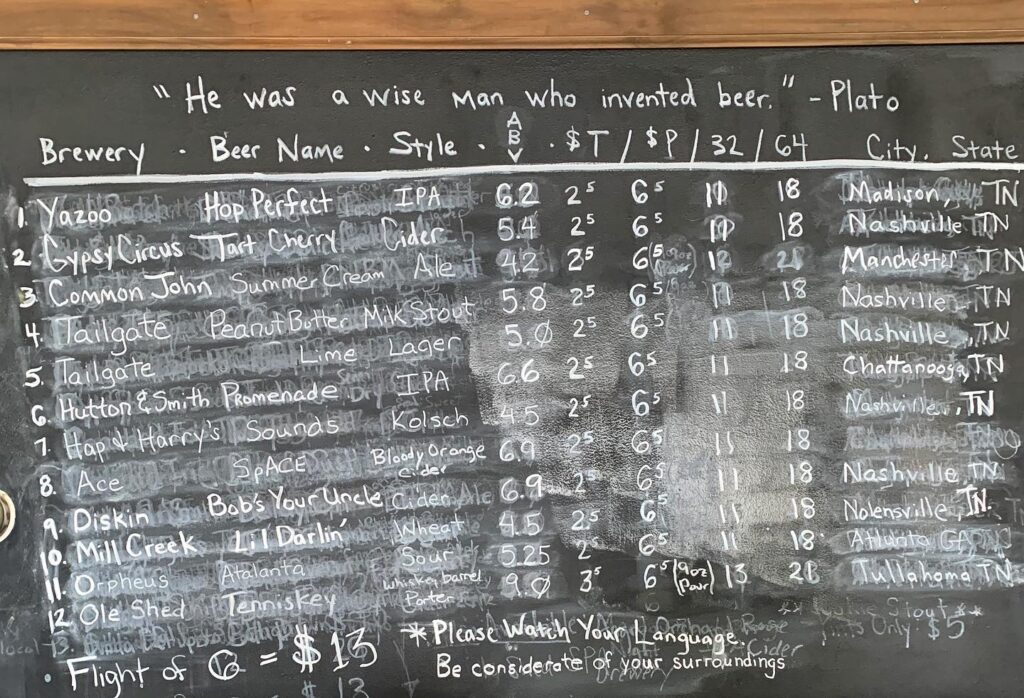 "He was a wise man who invented beer." - Plato
Brewery · Beer Name · Style · ABV · $T / $P / 32 / 64 City, State
1. Yazoo Hop Perfect IPA 6.2 2⁵ 6⁵ 11 18 Madison, TN
2. Gypsy Circus Tart Cherry Cider 5.4 2⁵ 6⁵ 18 Nashville, TN
3. Common John Summer Cream Ale 4.2 2⁵ 6⁵ Manchester, TN
4. Tailgate Peanut Butter Milk Stout 5.8 2⁵ 6⁵ 11 18 Nashville, TN
5. Tailgate Lime Lager 5.0 2⁵ 6⁵ 11 18 Nashville, TN
6. Hutton & Smith Promenade IPA 6.6 2⁵ 6⁵ 11 18 Chattanooga, TN
7. Hap & Harry's Sounds Kolsch 4.5 2⁵ 6⁵ 11 18 Nashville, TN
8. Ace SpACE Bloody Orange Cider 6.9 2⁵ 6⁵ 11 18
9. Diskin Bob's Your Uncle Cider 6.9 2⁵ 6⁵ 11 18 Nashville, TN
10. Mill Creek Lil Darlin' Wheat 4.5 2⁵ 6⁵ 11 18 Nolensville, TN.
11. Orpheus Atalanta Sour 5.25 2⁵ 6⁵ 11 18 Atlanta GA
12. Ole Shed Tenniskey Whiskey barrel Porter 9.0 3⁵ 6⁵ (9oz Pour) 13 Tullahoma TN
· Flight of 6 = $13
*Please Watch Your Language.
Be considerate of your surroundings